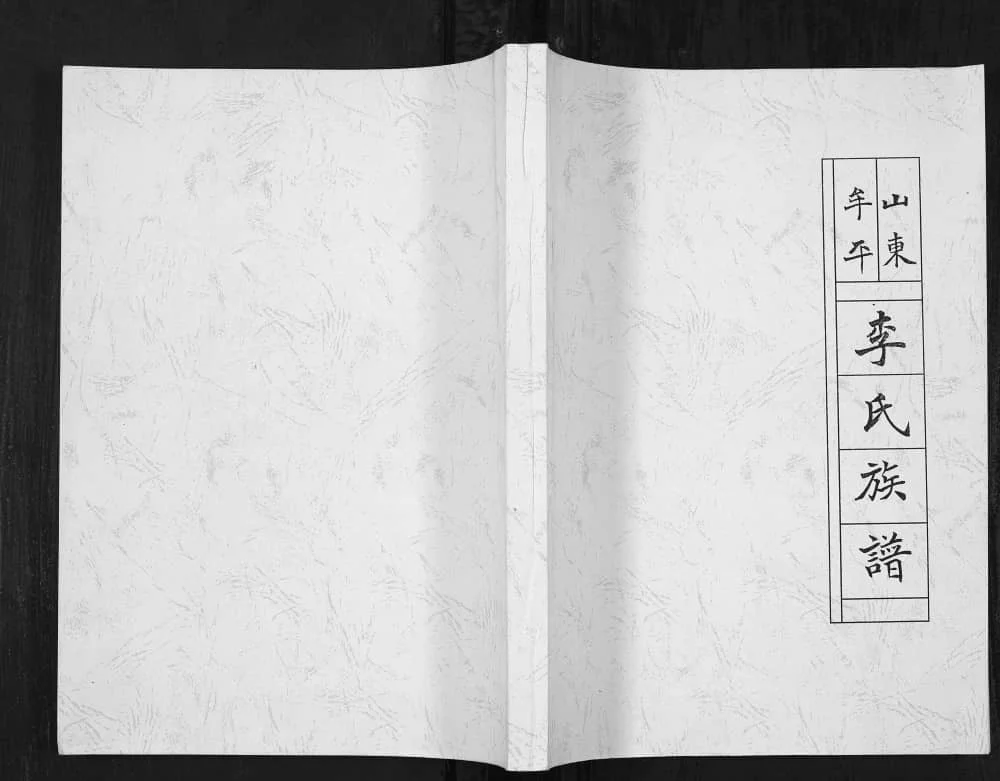 山東
牟平
李氏族譜